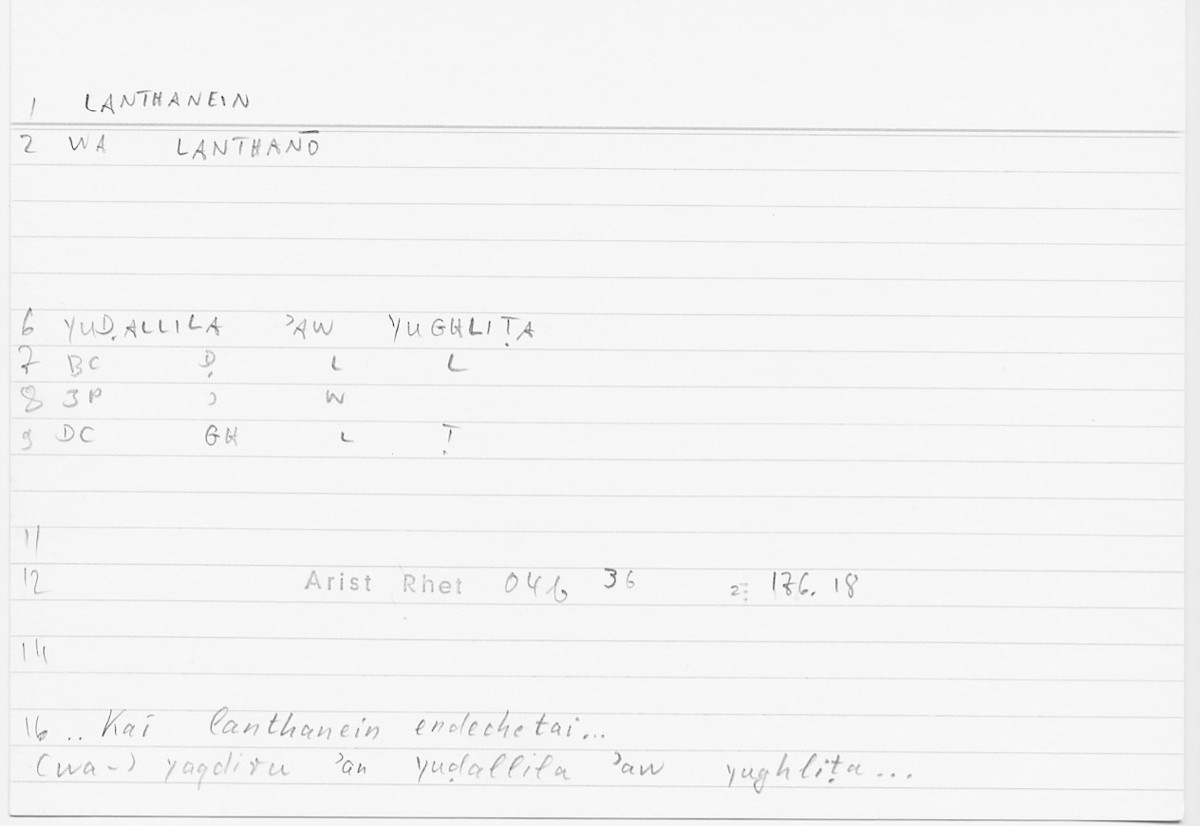 1 LANTHANEIN
2 WA LANTHANŌ
6 YUḌALLILA ʾAW YUGHLIṬA
7 BC Ḍ L L
8 3P ʾ W
9 DC GH L Ṭ
11
12 Arist Rhet 04b 36 = 176.18
14
16 .. Kai lanthanein endechetai...
(wa-) yaqdiru ʾan yuḍallila ʾaw yughliṭa...